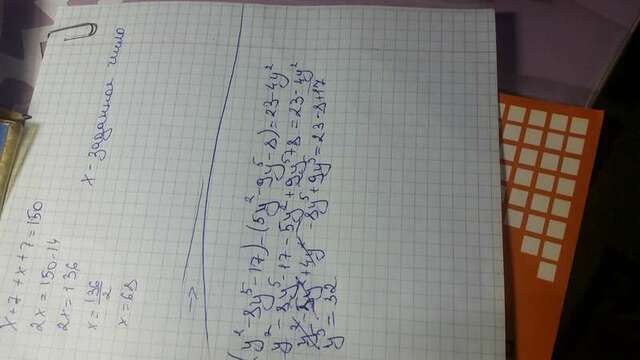 x + 7 + x + 7 = 150
2x = 150 - 14
2x = 136
x = 136/2
x - заданное число
x = 68
(y² - 8y⁵ - 17) - (5y² - 9y⁵ - 8) = 23 - 4y²
y² - 8y⁵ - 17 - 5y² + 9y⁵ + 8 = 23 - 4y²
y² - 5y² + 4y² - 8y⁵ + 9y⁵ = 23 - 8 + 17
y⁵ = 32